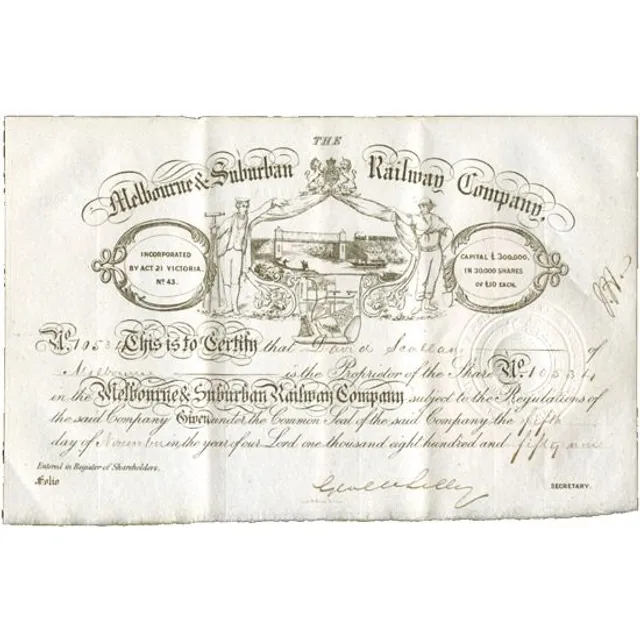 THE
Melbourne & Suburban Railway Company,
INCORPORATED
BY ACT 21 VICTORIA.
Nº 43.
CAPITAL £300,000.
IN 30,000 SHARES
OF £10 EACH.
Nº 10534 This is to Certify that David Scallan of
Melbourne is the Proprietor of the Share Nº 10534
in the Melbourne & Suburban Railway Company subject to the Regulations of
the said Company Given under the Common Seal of the said Company the fifth
day of November in the year of our Lord one thousand eight hundred and fifty nine
Entered in Register of Shareholders.
Folio
SECRETARY.